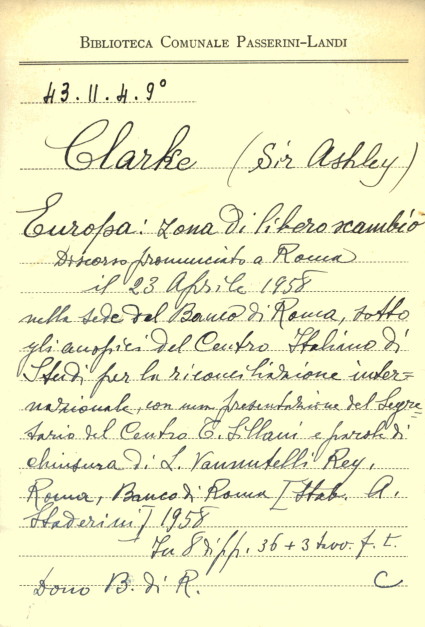 BIBLIOTECA COMUNALE PASSERINI-LANDI
43.II.4.9°
Clarke (Sir Ashley)
Europa: zona di libero scambio
Discorso pronunciato a Roma
il 23 Aprile 1958
nella sede del Banco di Roma, sotto
gli auspici del Centro Italiano di
Studi per la riconciliazione inter=
nazionale, con una presentazione del Segre=
tario del Centro T. Sillani e parole di
chiusura di L. Vannutelli Rey.
Roma, Banco di Roma [Stab. A.
Staderini] 1958
In 8 di pp. 36 + 3 tavv. f. t.
Dono B. di R. C